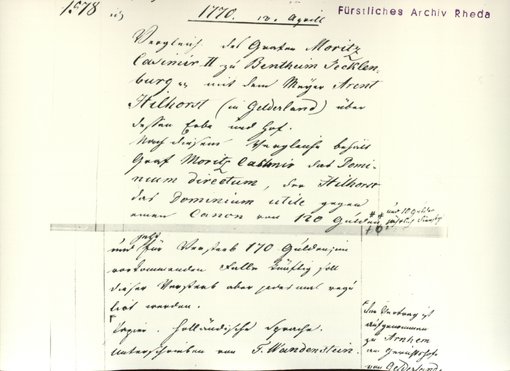 1578
1770. 10. April
Fürstliches Archiv Rheda
Vergleich des Grafen Moritz
Casimir II zu Bentheim Tecklen-
burg mit dem Meyer Arent
Hilhorst (in Gelderland) über
dessen Erbe und Hof.
Nach diesem Vergleiche behält
Graf Moritz Casimir das Domi-
nium directum, der Hilhorst
das Dominium utile gegen
einen Canon von 120 Gulden
und 10 Gulden
jetzt
und für Versterb 170 Gulden; im
vorkommenden Falle künftig soll
dieser Versterb aber jedesmal regu
lirt werden.
Papier. Holländische Sprache.
unterschrieben von T. Wandenstein.
Der Vertrag ist
aufgenommen
zu Arnhem
am Gerichtshofe
von Gelderland.